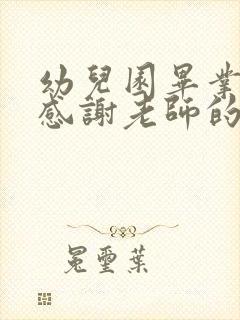 幼兒園畢業
感謝老師的
冕璽葉